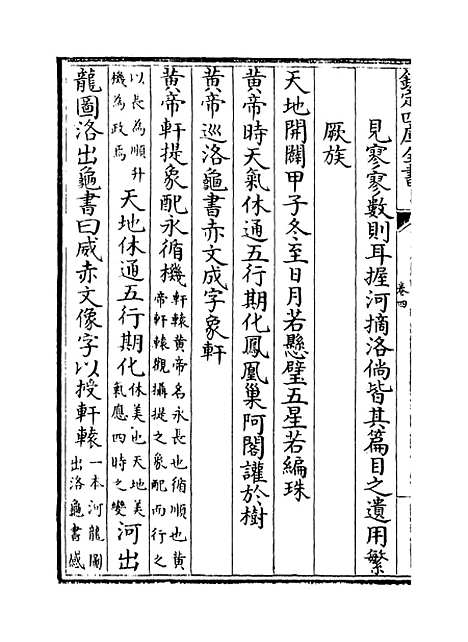 欽定四庫全書
卷四
見寥寥數則耳握河摘洛倘皆其篇目之遺用繁
厥族
天地開闢甲子冬至日月若懸璧五星若編珠
黃帝時天氣休通五行期化鳳凰巢阿閣讙於樹
黃帝巡洛龜書赤文成字象軒
黃帝軒提象配永循機軒轅黃帝名永長也循順也黃帝軒轅觀攝提之象配而行之
以長為順升機為政焉天地休通五行期化休美也天地美氣應四時之變河出
龍圖洛出龜書曰威赤文像字以授軒轅一本河龍圖出洛龜書威